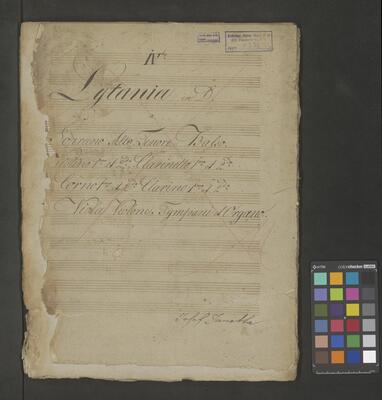 Lytania in D,
Soprano Alto, Tenore, Basso.
Violino 1mo et 2do Clarinetto 1mo et 2do
Corno 1mo et 2do Clarino 1mo et 2do
Viola, Violone, Tympani et Organo.
Josef
colorchecker